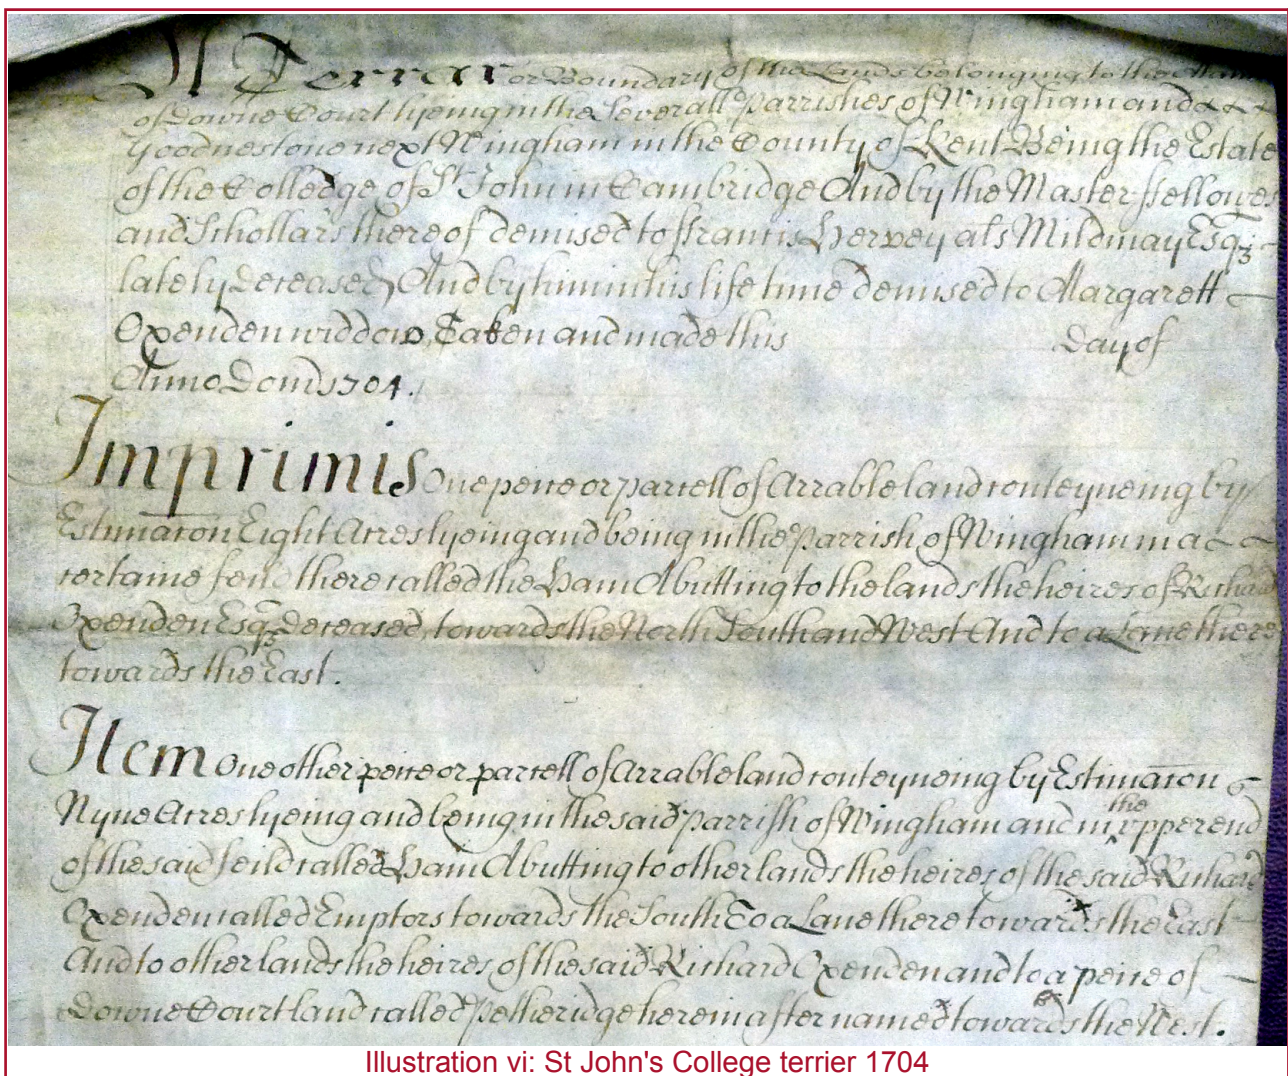 A Terrar or Boundary of the Lands belonging to the
of Downe Court lyeing in the Severall Parrishes of Wingham and
Goodnestone next Wingham in the County of Kent Being the Estate
of the Colledge of St John in Cambridge And by the Master ffellowes
and Schollars thereof demised to ffrancis Hervey als Mildmay Esqz
lately deceased, And by him in his life time demised to Margarett
Oxenden widdow, Taken and made this Day of
Anno Dom 1704.
Imprimis One peice or parcell of Arrable land conteyneing by
Estimacon Eight Acres lyeing and being in the Parrish of Wingham in a
certaine feild there called the Ham Abutting to the lands the heires of Richard
Oxenden Esqz deceased, towards the North South and West And to a Lane there
towards the East.
Item One other peice or parcell of Arrable land conteyneing by Estimacon
Nyne Acres lyeing and being in the said parrish of Wingham and in the upper end
of the said feild called Ham Abutting to other lands the heires of the said Richard
Oxenden called Emptors towards the South To a Lane there towards the East
And to other lands the heires of the said Richard Oxenden and to a peice of
Downe Court land called Petheridge herein after named towards the West.
Illustration vi: St John's College terrier 1704